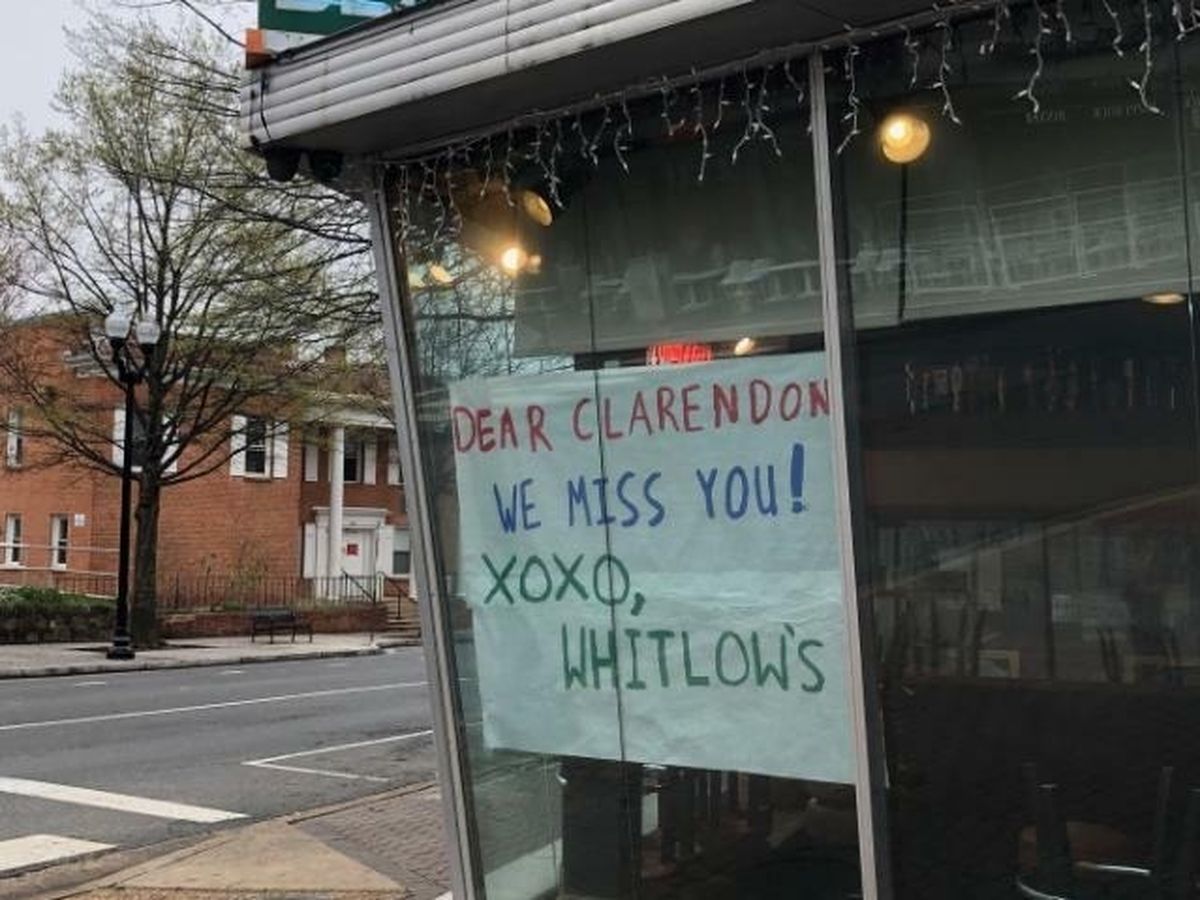 DEAR CLARENDON
WE MISS YOU!
XOXO,
WHITLOW'S